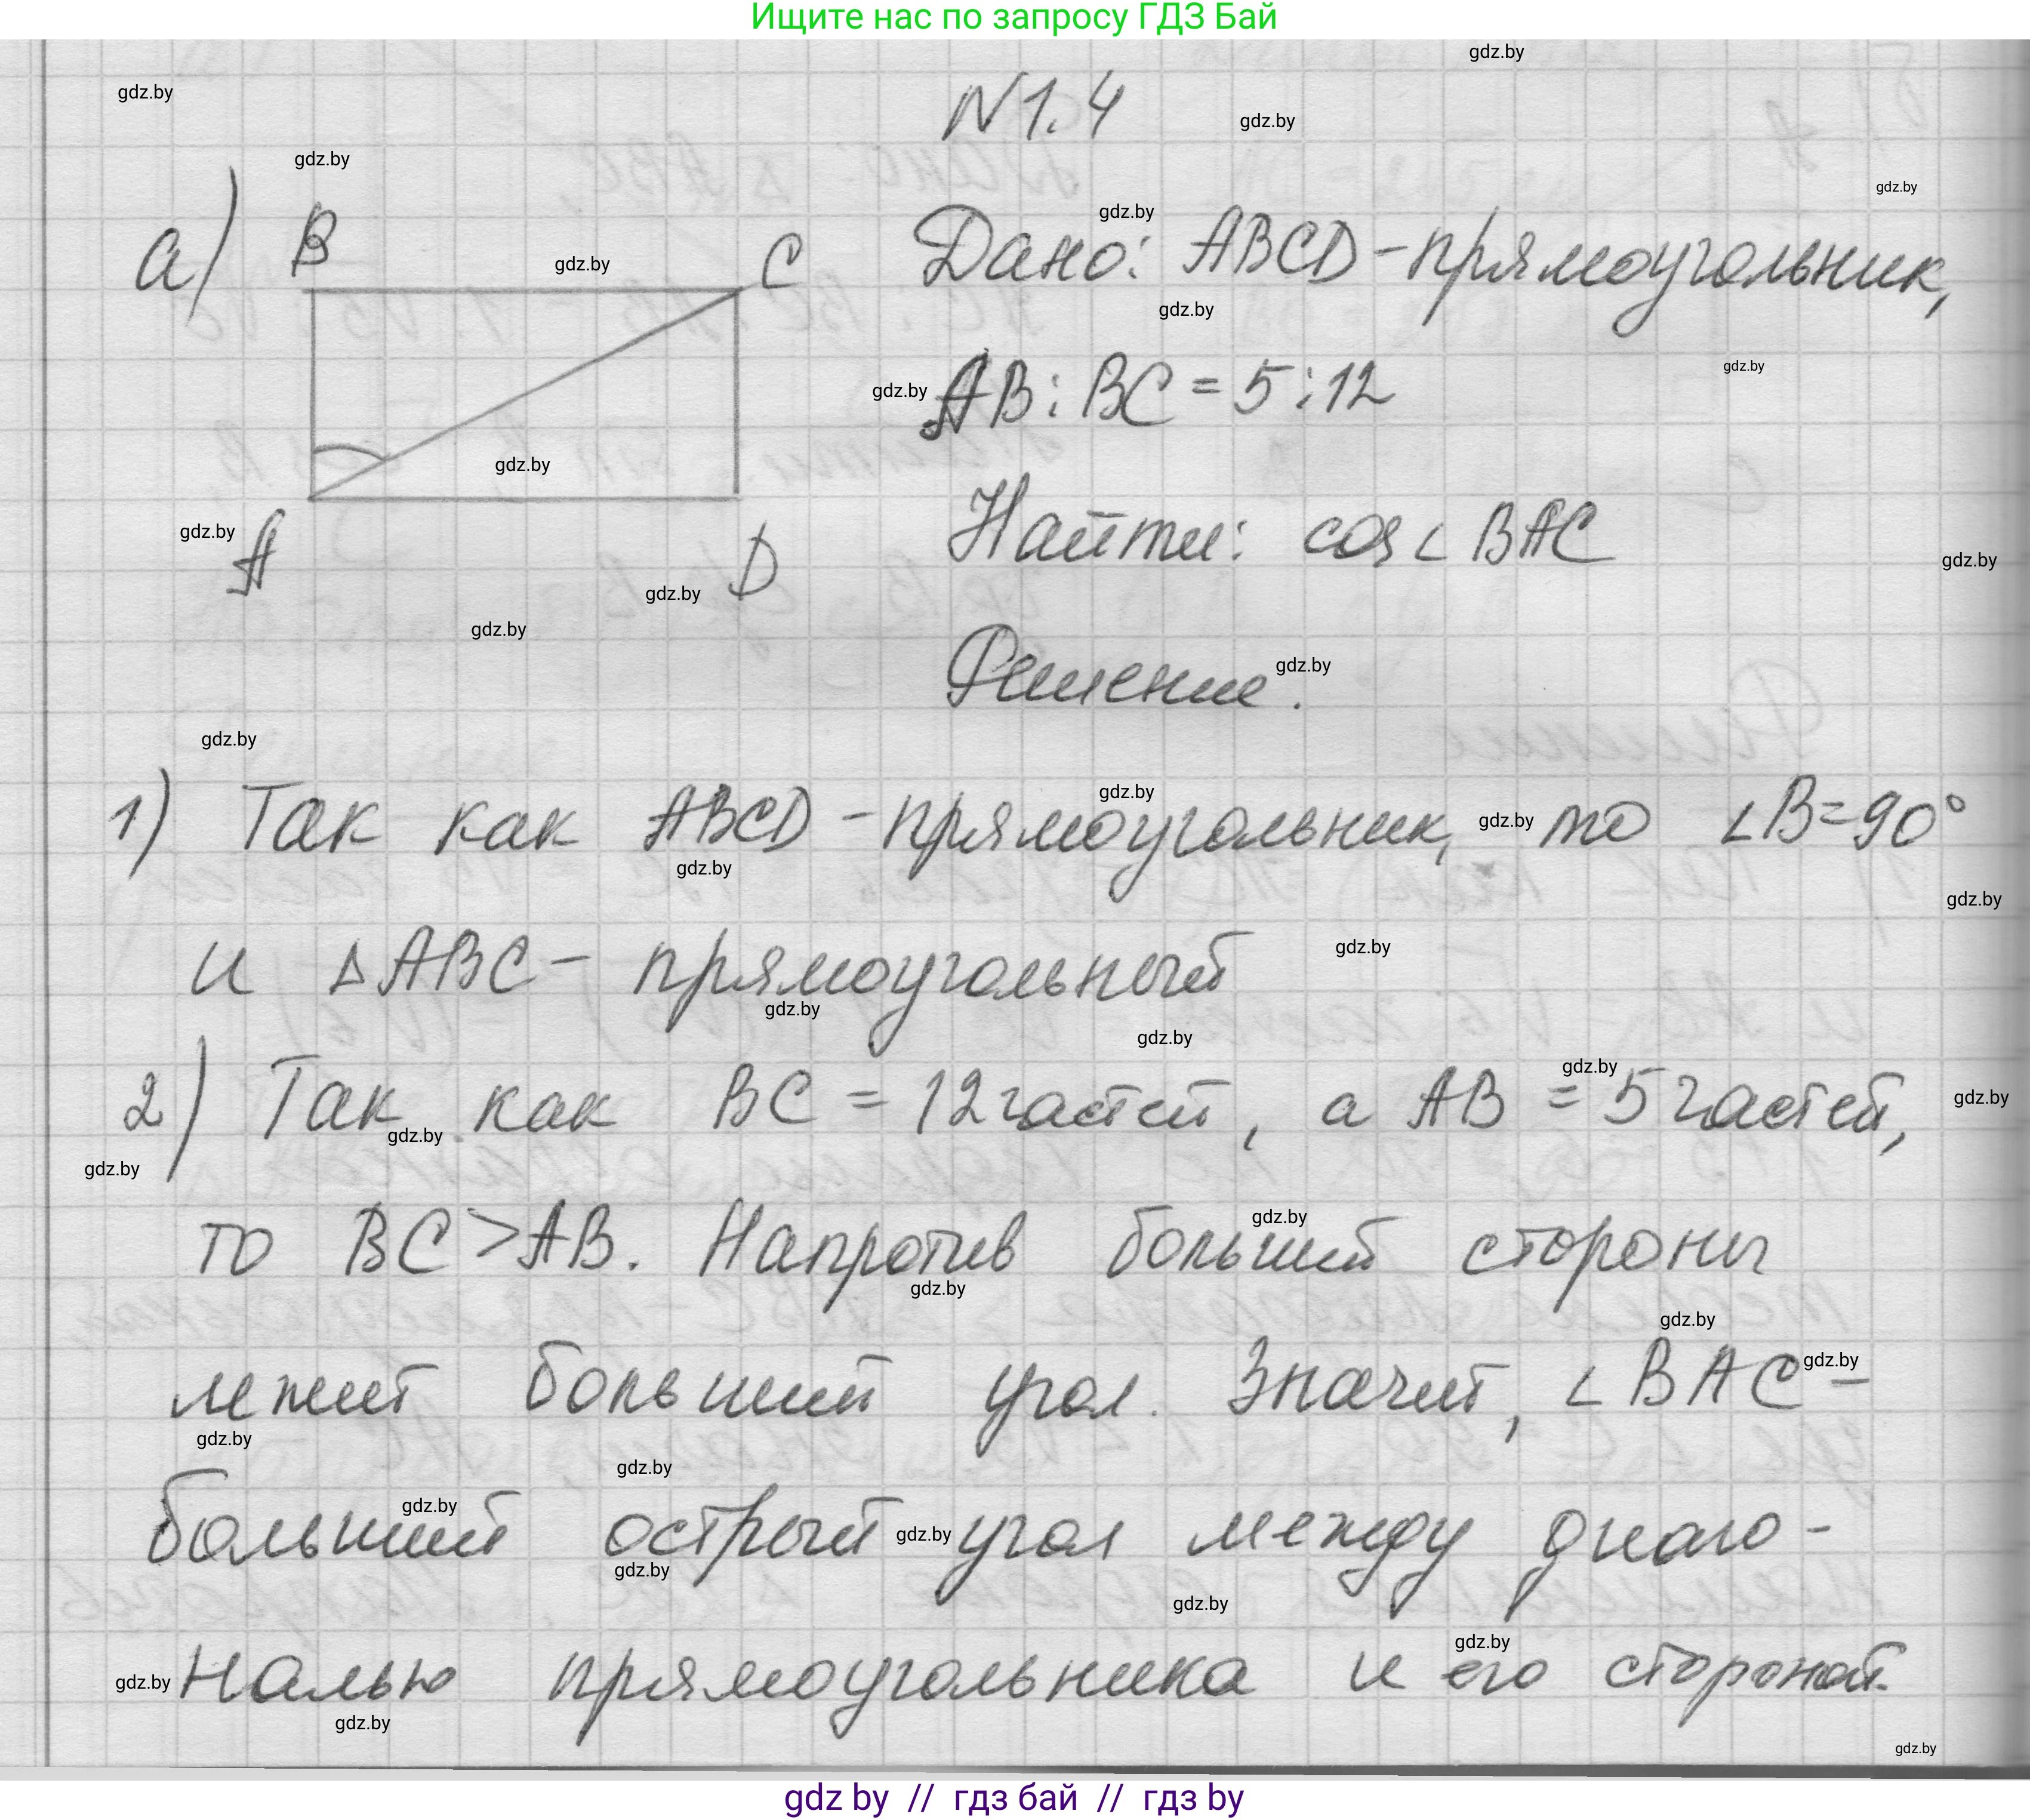 Ищите нас по запросу ГДЗ Бай
gdz.by
gdz.by
N1.4
gdz.by
gdz.by
gdz.by
gdz.by
а) B
gdz.by
C
Дано: ABCD - прямоугольник,
gdz.by
gdz.by
gdz.by
AB : BC = 5 : 12
gdz.by
gdz.by
A
D
Найти: cos ∠ BAC
gdz.by
gdz.by
gdz.by
Решение.
gdz.by
gdz.by
gdz.by
1) Так как ABCD - прямоугольник, то ∠B=90°
gdz.by
gdz.by
gdz.by
и △ABC - прямоугольный
gdz.by
gdz.by
gdz.by
gdz.by
2) Так как BC = 12 частей, а AB = 5 частей,
gdz.by
gdz.by
gdz.by
gdz.by
то BC > AB. Напротив больший стороны
gdz.by
gdz.by
лежит больший угол. Значит, ∠ BAC -
gdz.by
gdz.by
gdz.by
gdz.by
больший острый угол между диаго-
gdz.by
gdz.by
gdz.by
gdz.by
gdz.by налью прямоугольника и его стороной.
gdz.by
gdz.by
gdz by // гдз бай // гдз by